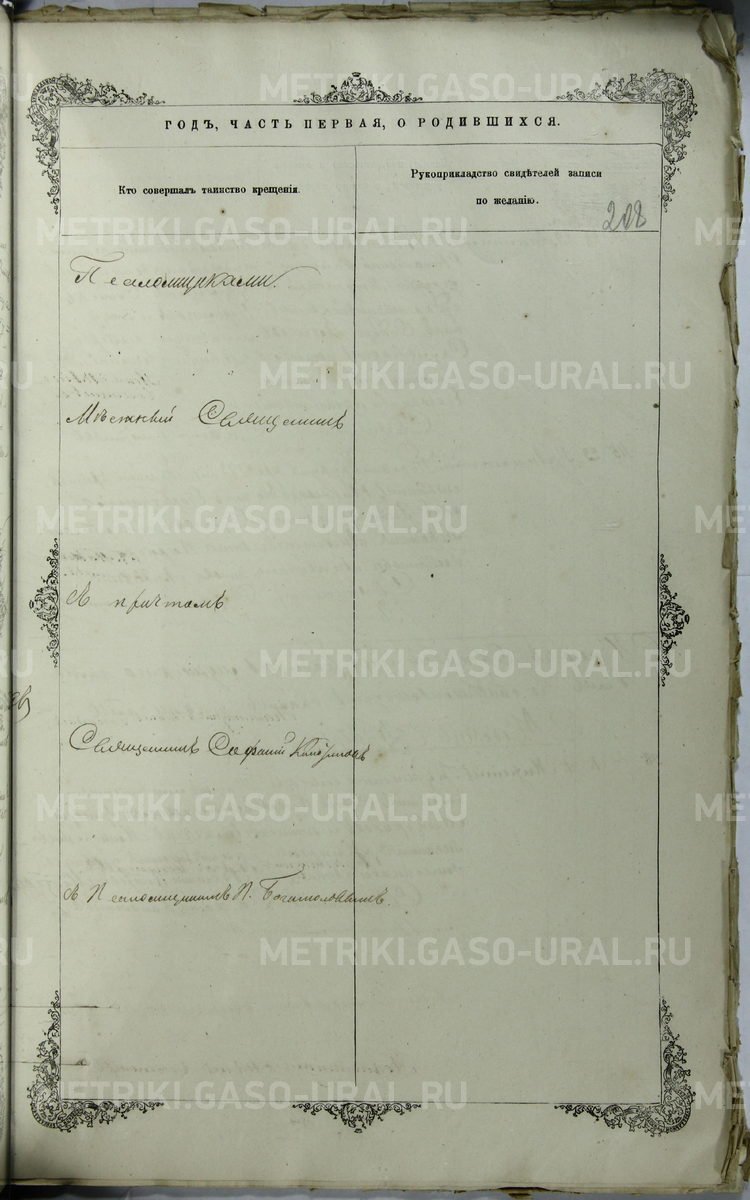 ГОДЪ, ЧАСТЬ ПЕРВАЯ, О РОДИВШИХСЯ.
Кто совершалъ таинство крещенія.
Рукоприкладство свидѣтелей записи
по желанію.
208
Псаломщиками.
Мѣстный Священникъ
съ причтомъ
Священникъ
съ Псаломщикомъ П.
METRIKI.GASO-URAL.RU